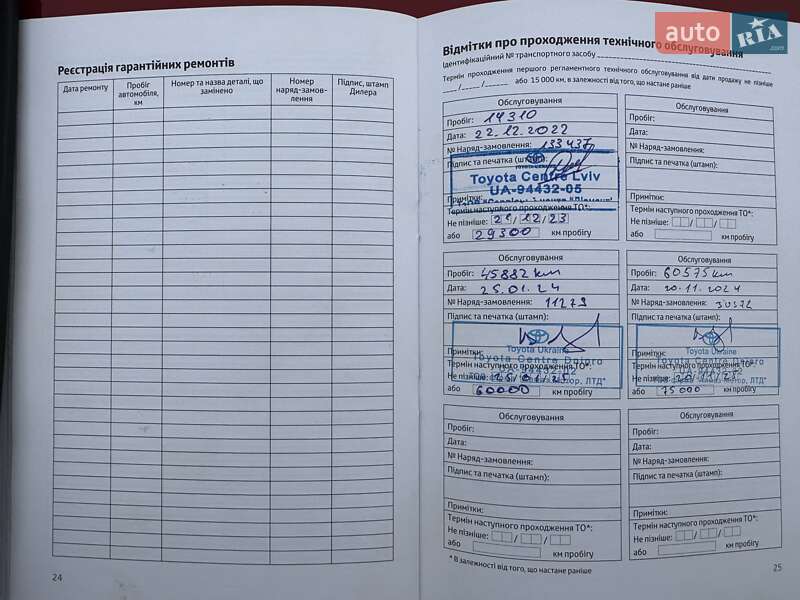 Реєстрація гарантійних ремонтів
Дата ремонту
Пробіг автомобіля, км
Номер та назва деталі, що замінено
Номер наряд-замов-лення
Підпис, штамп Дилера
24
auto RIA .com
Відмітки про проходження технічного обслуговування
Ідентифікаційний № транспортного засобу
Термін проходження першого регламентного технічного обслуговування від дати продажу не пізніше
__/__/____ або 15 000 км, в залежності від того, що настане раніше
Обслуговування
Пробіг: 14310
Дата: 22.12.2022
№ Наряд-замовлення: 133437
Підпис та печатка (штамп):
Toyota Centre Lviv
UA-94432-05
Примітки:
Термін наступного проходження ТО*:
Не пізніше: 21/12/23
або 29300 км пробігу
Обслуговування
Пробіг:
Дата:
№ Наряд-замовлення:
Підпис та печатка (штамп):
Примітки:
Термін наступного проходження ТО*:
Не пізніше:
або км пробігу
Обслуговування
Пробіг: 45882 km
Дата: 25.01.24
№ Наряд-замовлення: 11279
Підпис та печатка (штамп):
Toyota Ukraine
Примітки:
Toyota Centre Dnipro
Термін наступного проходження ТО*:
Не пізніше:
або 60000 км пробігу
Обслуговування
Пробіг: 60575 km
Дата: 20.11.2024
№ Наряд-замовлення: 30572
Підпис та печатка (штамп):
Toyota Ukraine
Примітки:
Toyota Centre Dnipro
Термін наступного проходження ТО*:
Не пізніше:
або 75000 км пробігу
Обслуговування
Пробіг:
Дата:
№ Наряд-замовлення:
Підпис та печатка (штамп):
Примітки:
Термін наступного проходження ТО*:
Не пізніше:
або км пробігу
Обслуговування
Пробіг:
Дата:
№ Наряд-замовлення:
Підпис та печатка (штамп):
Примітки:
Термін наступного проходження ТО*:
Не пізніше:
або км пробігу
* В залежності від того, що настане раніше
25